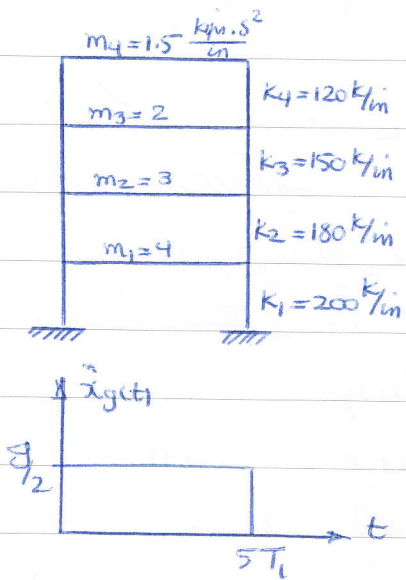 m₄=1.5 kips.s²/in
K₄=120 K/in
m₃=2
K₃=150 K/in
m₂=3
K₂=180 K/in
m₁=4
K₁=200 K/in
ẍg(t)
g/2
t
5T₁